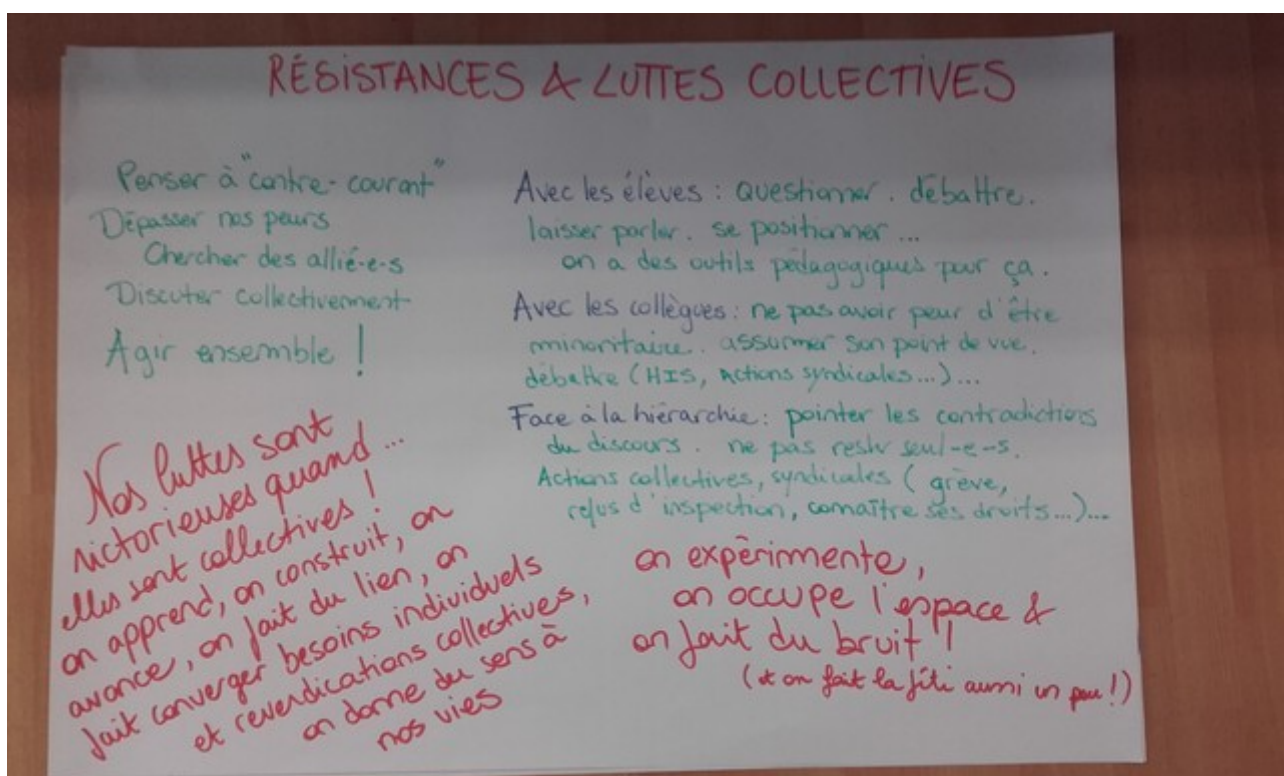 RÉSISTANCES & LUTTES COLLECTIVES
Penser à "contre-courant"
Dépasser nos peurs
Chercher des allié-e-s
Discuter collectivement
Agir ensemble !
Nos luttes sont
victorieuses quand...
elles sont collectives !
on apprend, on construit, on
avance, on fait du lien, on
fait converger besoins individuels
et revendications collectives,
on donne du sens à
nos vies
Avec les élèves : questionner. débattre.
laisser parler. se positionner...
on a des outils pédagogiques pour ça.
Avec les collègues : ne pas avoir peur d'être
minoritaire. assumer son point de vue.
débattre (HIS, Actions syndicales...)...
Face à la hiérarchie : pointer les contradictions
du discours. ne pas rester seul-e-s.
Actions collectives, syndicales (grève,
refus d'inspection, connaître ses droits...)...
on expérimente,
on occupe l'espace &
on fait du bruit !
(et on fait la fête aussi un peu !)